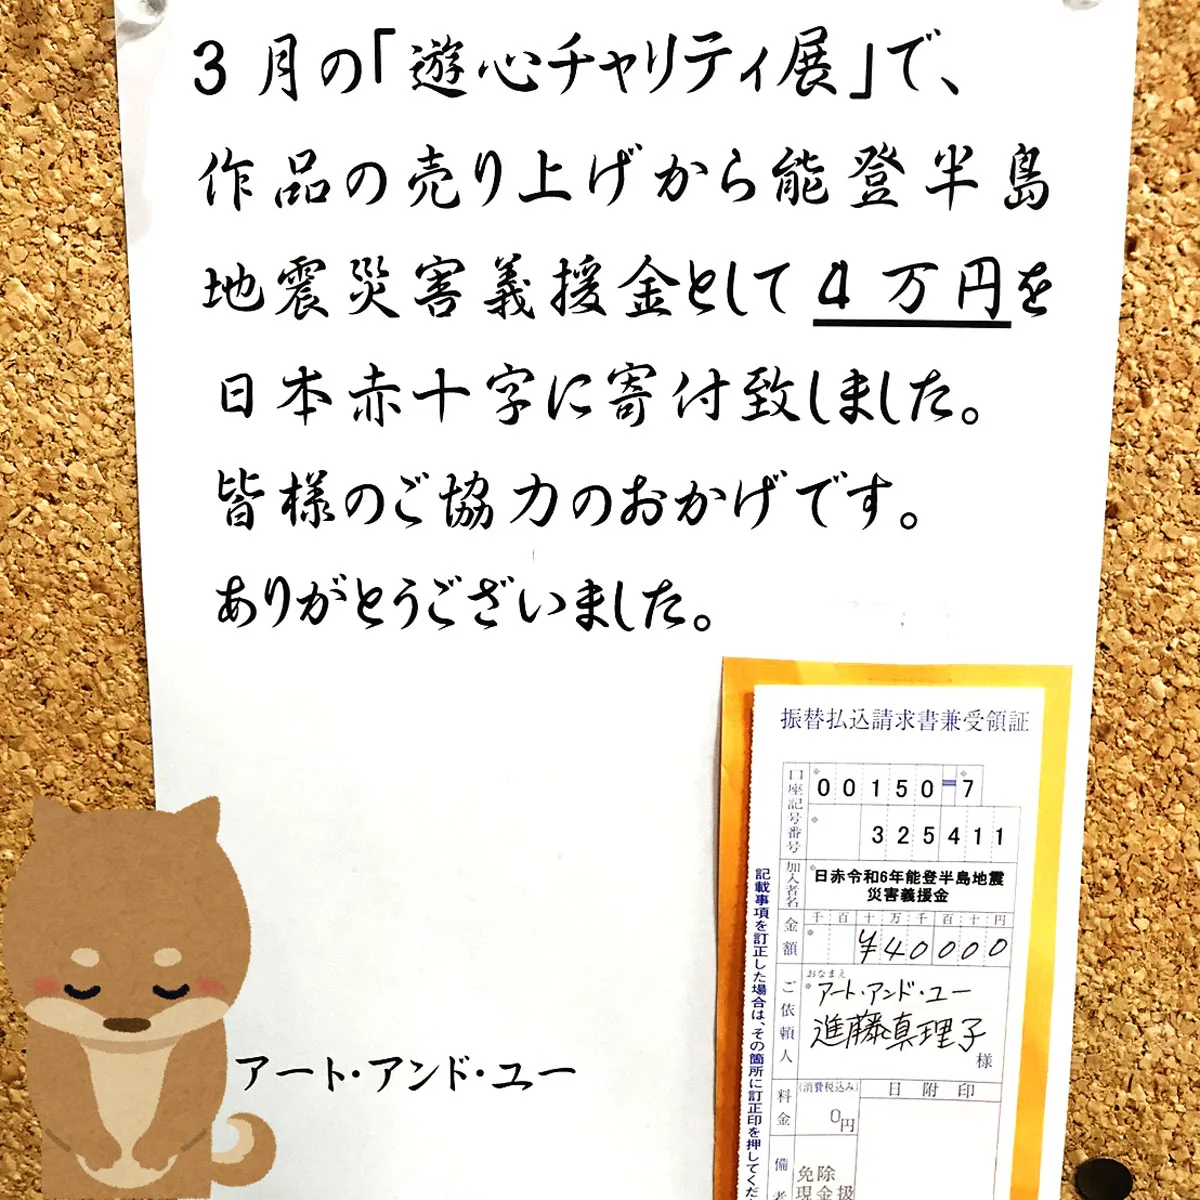 3月の「遊心チャリティ展」で、
作品の売り上げから能登半島
地震災害義援金として4万円を
日本赤十字に寄付致しました。
皆様のご協力のおかげです。
ありがとうございました。
アート・アンド・ユー
振替払込請求書兼受領証
口座記号番号
00150-7
325411
加入者名
日赤令和6年能登半島地震
災害義援金
金額
千百十万千百十円
¥40000
ご依頼人
おなまえ
アート・アンド・ユー
進藤真理子
様
料金
(消費税込み)
0円
日附印
備考
免除
現金扱
記載事項を訂正した場合は、その箇所に訂正印を押してくだ